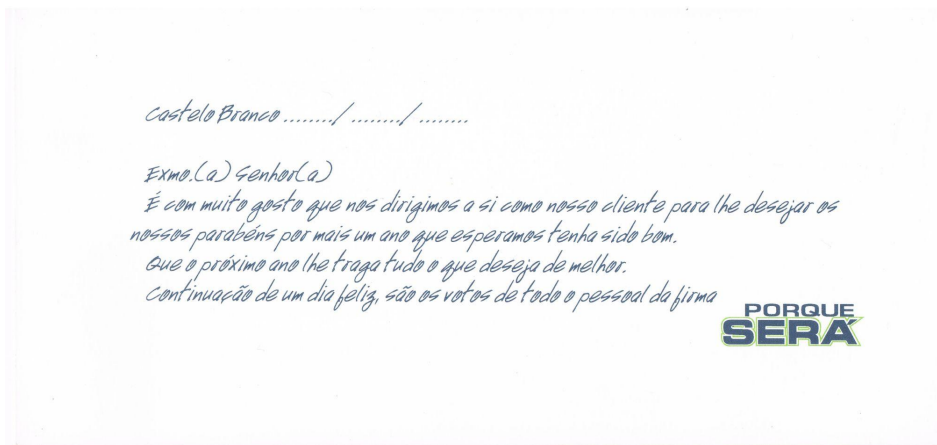 Castelo Branco ......../ ......../ ........
Exmo.(a) Senhor(a)
É com muito gosto que nos dirigimos a si como nosso cliente para lhe desejar os
nossos parabéns por mais um ano que esperamos tenha sido bom.
Que o próximo ano lhe traga tudo o que deseja de melhor.
Continuação de um dia feliz, são os votos de todo o pessoal da firma
PORQUE
SERÁ